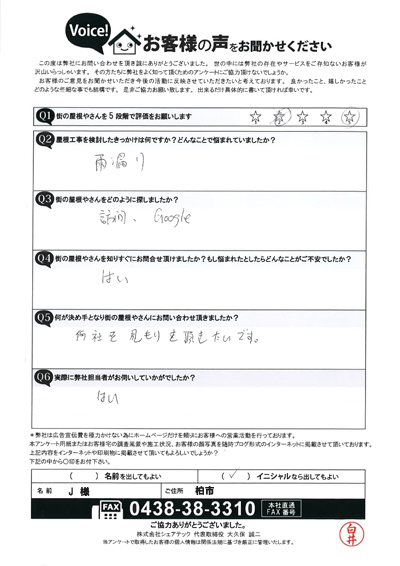 Voice!
お客様の声をお聞かせください
この度は弊社にお問い合わせを頂き誠にありがとうございました。 世の中には弊社の存在やサービスをご存知ないお客様が
沢山いらっしゃいます。 その方たちに弊社をよく知って頂くためのアンケートにご協力頂けないでしょうか。
お客様のご意見をお聞かせいただき今後の活動に反映させていただきたいと考えております。 良かったこと、嬉しかったこと
どのような些細な事でも結構です。 是非ご協力お願い致します。 出来るだけ具体的に書いて頂ければ幸いです。
Q1 街の屋根やさんを5段階で評価をお願いします ☆ ☆ ☆ ☆ ☆
Q2 屋根工事を検討したきっかけは何ですか?どんなことで悩まれていましたか?
雨漏り
Q3 街の屋根やさんをどのように探しましたか?
訪問、Google
Q4 街の屋根やさんを知りすぐにお問合せ頂けましたか?もし悩まれたとしたらどんなことがご不安でしたか?
はい
Q5 何が決め手となり街の屋根やさんにお問い合わせ頂きましたか?
何社を見もりを頂きたいです。
Q6 実際に弊社担当者がお伺いしていかがでしたか?
はい
*弊社は広告宣伝費を極力かけない為にホームページだけを頼りにお客様への営業活動を行っております。
本アンケート用紙またはお客様宅の調査風景や施工状況、お客様の顔写真を随時ブログ形式のインターネットに掲載させて頂いております。
上記内容をインターネットや印刷物に掲載させて頂いてもよろしいでしょうか?
下記の中から〇印をお付下さい。
( ) 名前を出してもよい ( ✓ ) イニシャルなら出してもよい
名 前 J 様 ご住所 柏市
FAX 0438-38-3310 本社直通 FAX番号
ご協力ありがとうございました。
株式会社シェアテック 代表取締役 大久保 誠二
当アンケートで取得したお客様の個人情報は関係法規に基づき厳正に管理いたします。
白井